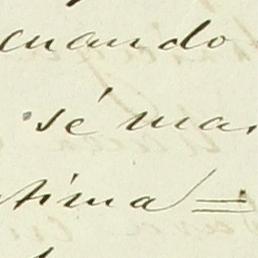 cuando
sé mar
tima =